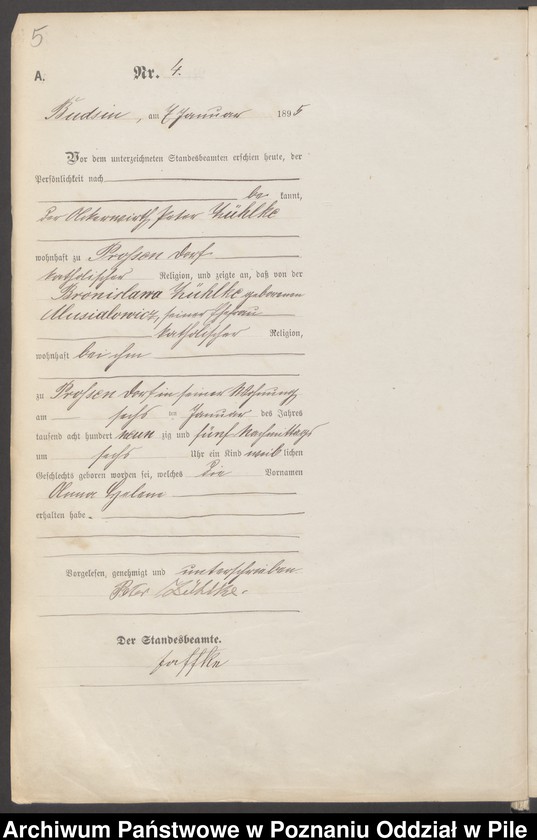 5
A.
Nr. 4.
Budsin, am 7 Januar 1895
Vor dem unterzeichneten Standesbeamten erschien heute, der
Persönlichkeit nach
be kannt,
der Ackerwirth Peter Zühlke
wohnhaft zu Prossen Dorf
katholischer Religion, und zeigte an, daß von der
Bronislawa Zühlke geborenen
Musialowicz, seiner Ehefrau
katholischer Religion,
wohnhaft bei ihm
zu Prossen Dorf in seiner Wohnung
am sechs ten Januar des Jahres
tausend acht hundert neun zig und fünf Nachmittags
um sechs Uhr ein Kind weib lichen
Geschlechts geboren worden sei, welches die Vornamen
Anna Helene
erhalten habe.
Vorgelesen, genehmigt und unterschrieben
Peter Zühlke.
Der Standesbeamte.
Jaffke
Archiwum Państwowe w Poznaniu Oddział w Pile